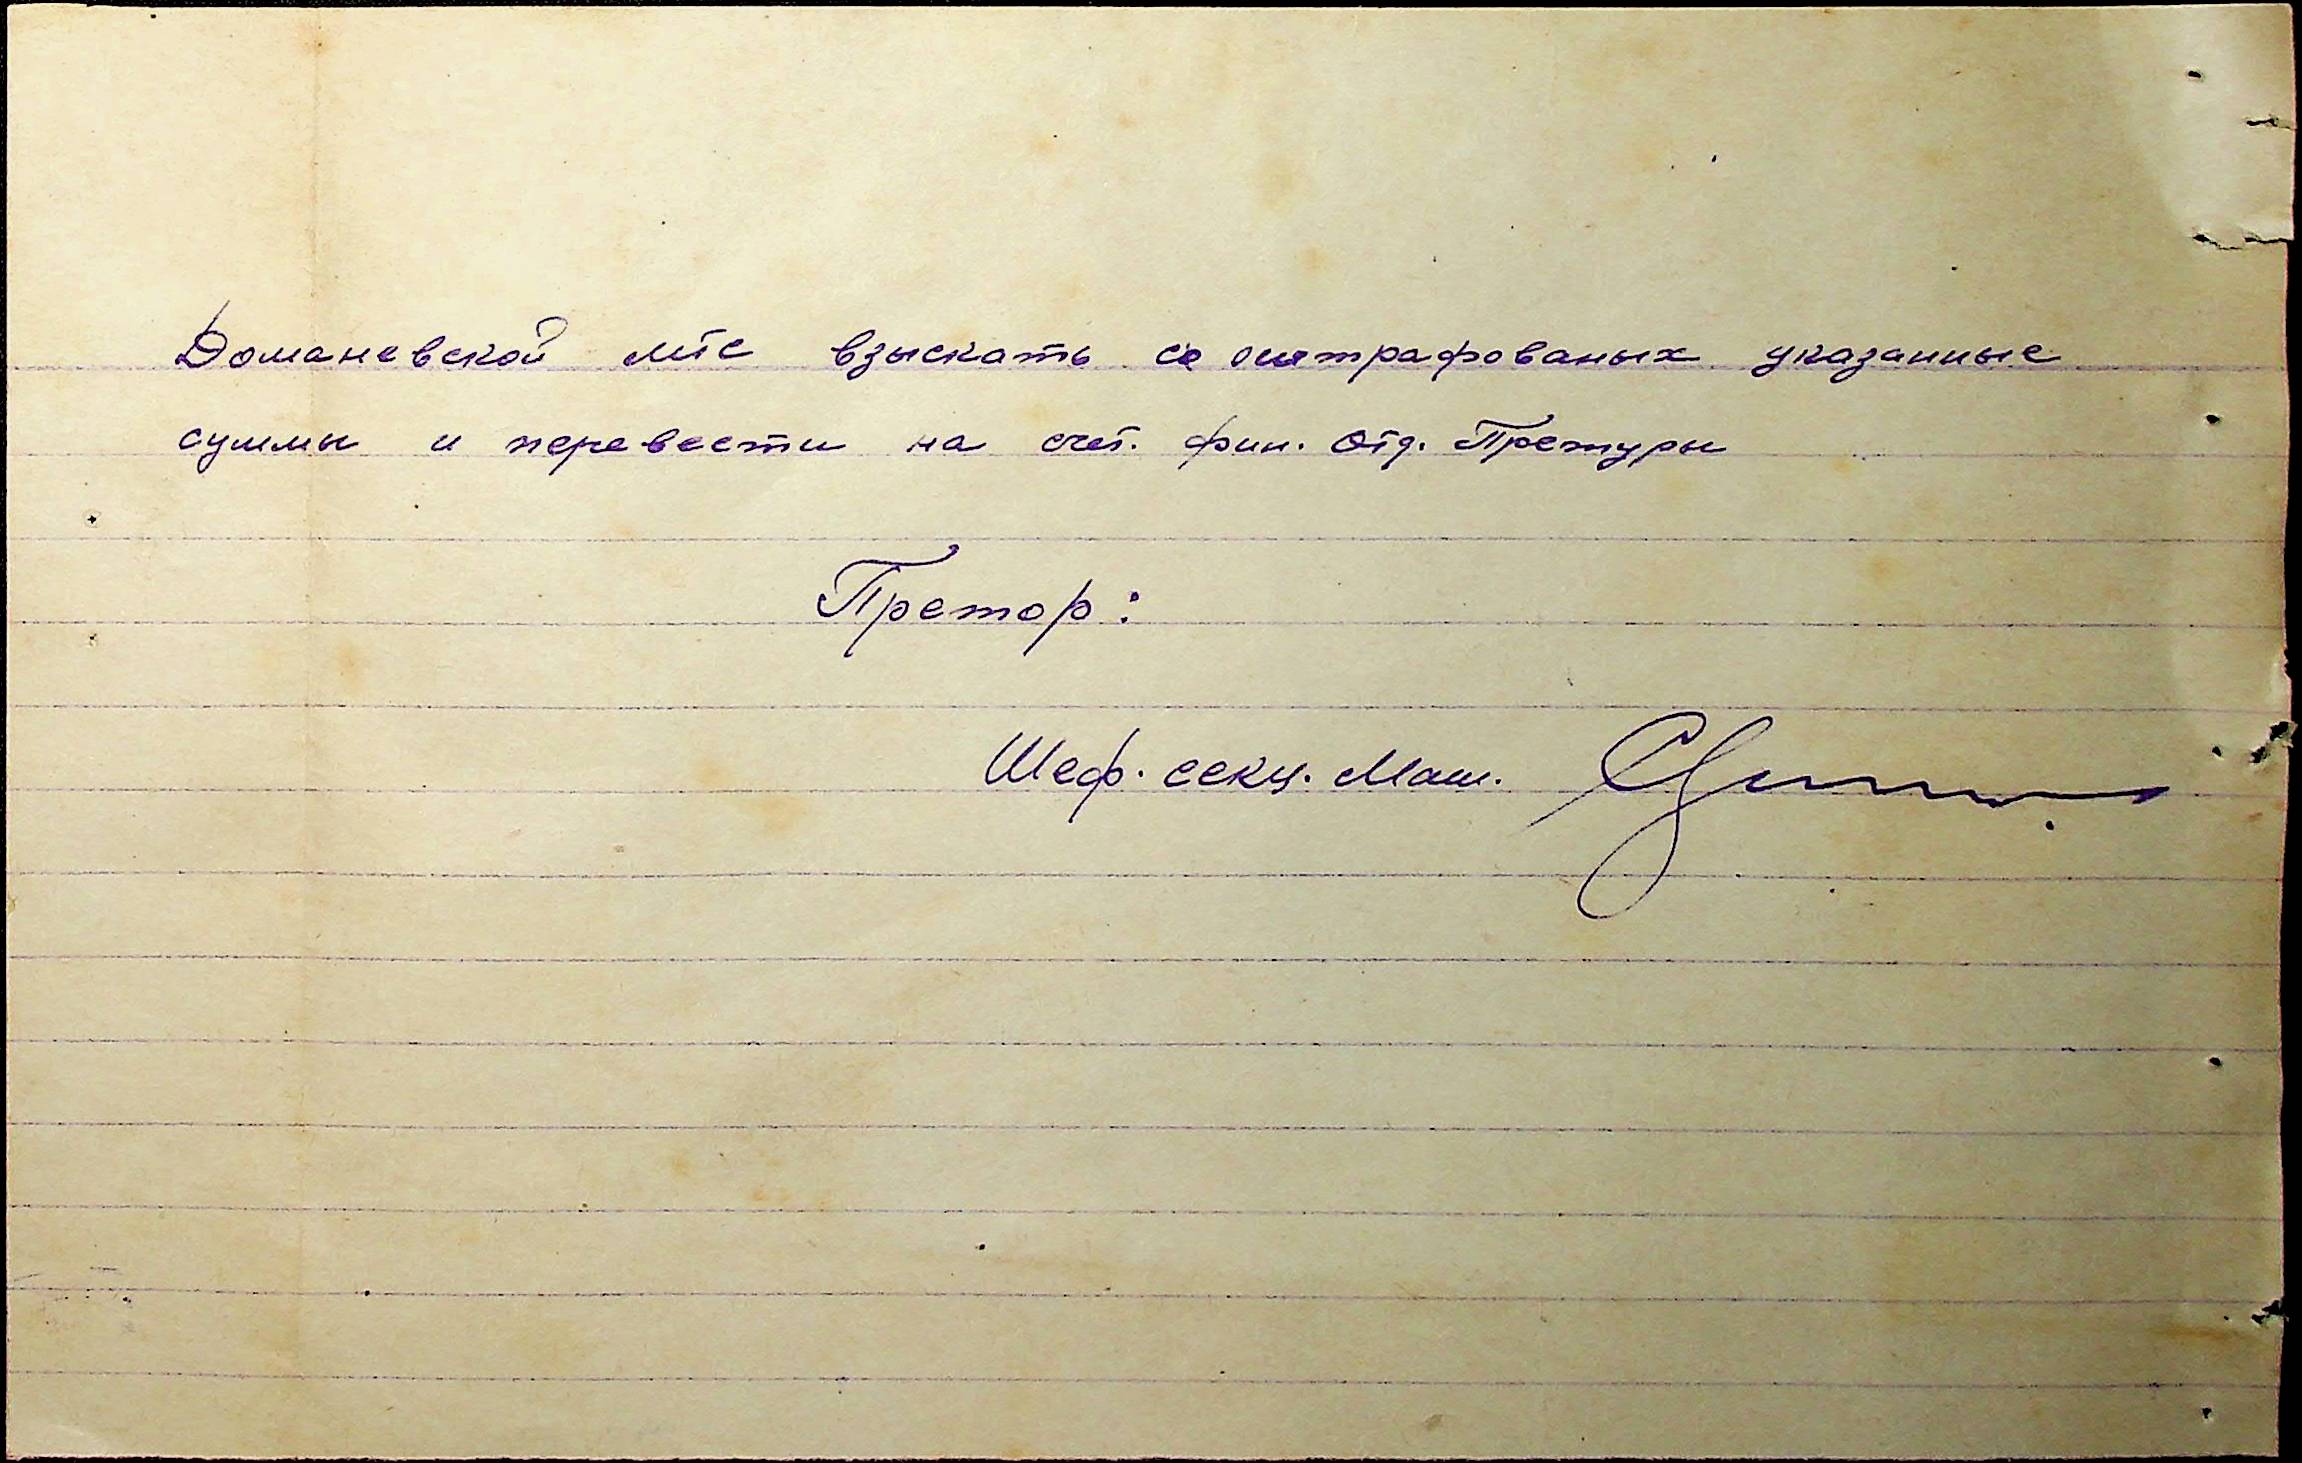 Доманевской мтс взыскать со оштрафованых указанные
суммы и перевести на счет. фин. отд. Претуры
Претор:
Шеф. секц. Маш.